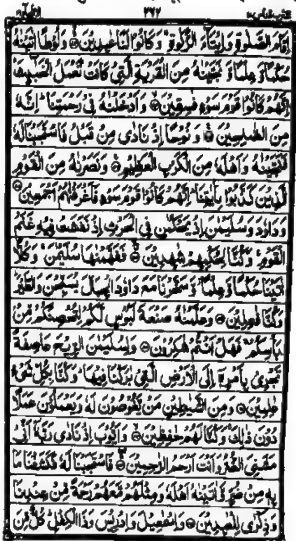 اِقَامَ الصَّلٰوةِ وَاِيْتَآءَ الزَّكٰوةِ ۚ وَكَانُوْا لَنَا عٰبِدِيْنَ ۝ وَلُوْطًا اٰتَيْنٰهُ
حُكْمًا وَّعِلْمًا وَّنَجَّيْنٰهُ مِنَ الْقَرْيَةِ الَّتِيْ كَانَتْ تَّعْمَلُ الْخَبٰٓئِثَ ؕ
اِنَّهُمْ كَانُوْا قَوْمَ سَوْءٍ فٰسِقِيْنَ ۝ وَاَدْخَلْنٰهُ فِيْ رَحْمَتِنَا ؕ اِنَّهٗ
مِنَ الصّٰلِحِيْنَ ۝ وَنُوْحًا اِذْ نَادٰى مِنْ قَبْلُ فَاسْتَجَبْنَا لَهٗ
فَنَجَّيْنٰهُ وَاَهْلَهٗ مِنَ الْكَرْبِ الْعَظِيْمِ ۝ وَنَصَرْنٰهُ مِنَ الْقَوْمِ
الَّذِيْنَ كَذَّبُوْا بِاٰيٰتِنَا ؕ اِنَّهُمْ كَانُوْا قَوْمَ سَوْءٍ فَاَغْرَقْنٰهُمْ اَجْمَعِيْنَ ۝
وَدَاوٗدَ وَسُلَيْمٰنَ اِذْ يَحْكُمٰنِ فِي الْحَرْثِ اِذْ نَفَشَتْ فِيْهِ غَنَمُ
الْقَوْمِ ۚ وَكُنَّا لِحُكْمِهِمْ شٰهِدِيْنَ ۝ فَفَهَّمْنٰهَا سُلَيْمٰنَ ۚ وَكُلًّا
اٰتَيْنَا حُكْمًا وَّعِلْمًا ۫ وَّسَخَّرْنَا مَعَ دَاوٗدَ الْجِبَالَ يُسَبِّحْنَ وَالطَّيْرَ ؕ
وَكُنَّا فٰعِلِيْنَ ۝ وَعَلَّمْنٰهُ صَنْعَةَ لَبُوْسٍ لَّكُمْ لِتُحْصِنَكُمْ مِّنْۢ
بَاْسِكُمْ ۚ فَهَلْ اَنْتُمْ شٰكِرُوْنَ ۝ وَلِسُلَيْمٰنَ الرِّيْحَ عَاصِفَةً
تَجْرِيْ بِاَمْرِهٖٓ اِلَى الْاَرْضِ الَّتِيْ بٰرَكْنَا فِيْهَا ؕ وَكُنَّا بِكُلِّ شَيْءٍ
عٰلِمِيْنَ ۝ وَمِنَ الشَّيٰطِيْنِ مَنْ يَّغُوْصُوْنَ لَهٗ وَيَعْمَلُوْنَ عَمَلًا
دُوْنَ ذٰلِكَ ۚ وَكُنَّا لَهُمْ حٰفِظِيْنَ ۝ وَاَيُّوْبَ اِذْ نَادٰى رَبَّهٗٓ اَنِّيْ
مَسَّنِيَ الضُّرُّ وَاَنْتَ اَرْحَمُ الرّٰحِمِيْنَ ۝ فَاسْتَجَبْنَا لَهٗ فَكَشَفْنَا مَا
بِهٖ مِنْ ضُرٍّ وَّاٰتَيْنٰهُ اَهْلَهٗ وَمِثْلَهُمْ مَّعَهُمْ رَحْمَةً مِّنْ عِنْدِنَا
وَذِكْرٰى لِلْعٰبِدِيْنَ ۝ وَاِسْمٰعِيْلَ وَاِدْرِيْسَ وَذَا الْكِفْلِ ؕ كُلٌّ مِّنَ